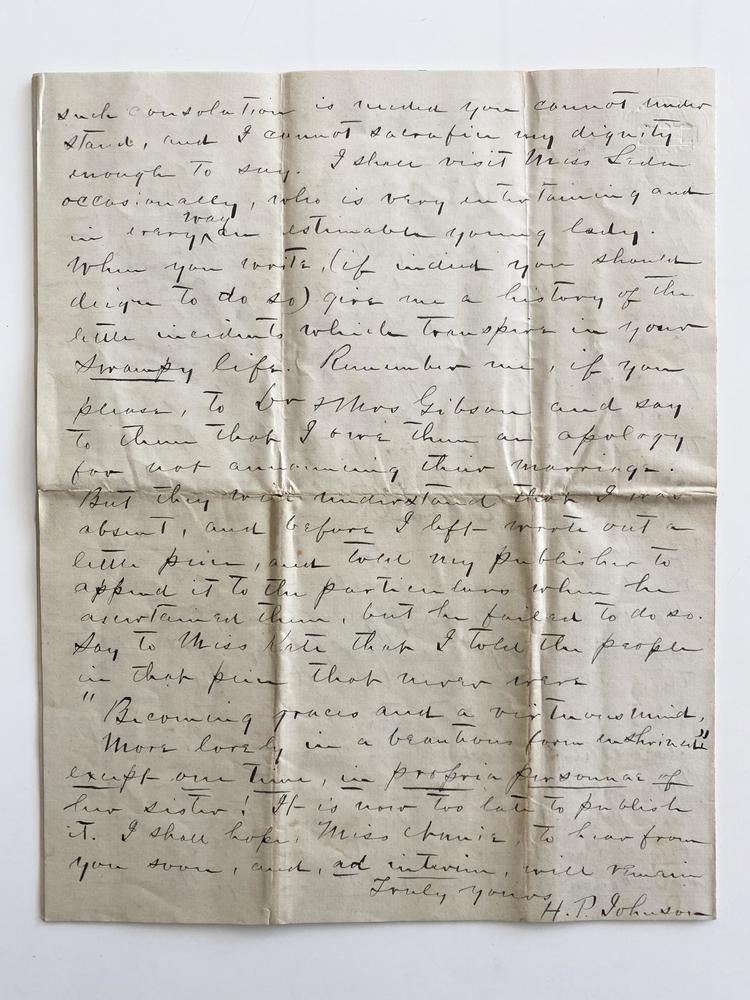 such consolation is needed you cannot under
stand, and I cannot sacrafice my dignity
enough to say. I shall visit Miss Leda
occasionally, who is very entertaining and
in every way an estimable young lady.
When you write, (if indeed you should
deign to do so) give me a history of the
little incidents which transpire in your
Swampy life. Remember me, if you
please, to Dr & Mrs Gibson and say
to them that I owe them an apology
for not announcing their marriage.
But they will understand that I was
absent, and before I left wrote out a
little piece, and told my publisher to
append it to the particulars when he
ascertained them, but he failed to do so.
Say to Miss Kate that I told the people
in that piece that never were
"Becoming graces and a virtuous mind,
More lovely in a beauteous form enshrined"
except one time, in propria personnae of
her sister! It is now too late to publish
it. I shall hope, Miss Annie, to hear from
you soon, and, ad interim, will remain
Truly yours
H. P. Johnson